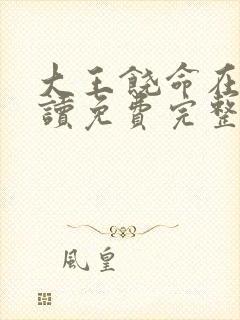 大王饶命在
讀免費完整
風皇